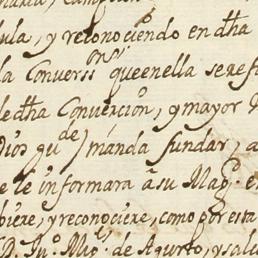 ula, y reconociendo en dha
la Converss.on que en ella se refi
de dha Convercion, y mayor
Dios qu de manda fundar, a
e le informara a su Mag.d e
biere, y reconociere, como por esta
D. Ju.o Mag.s de Agurto, y sal